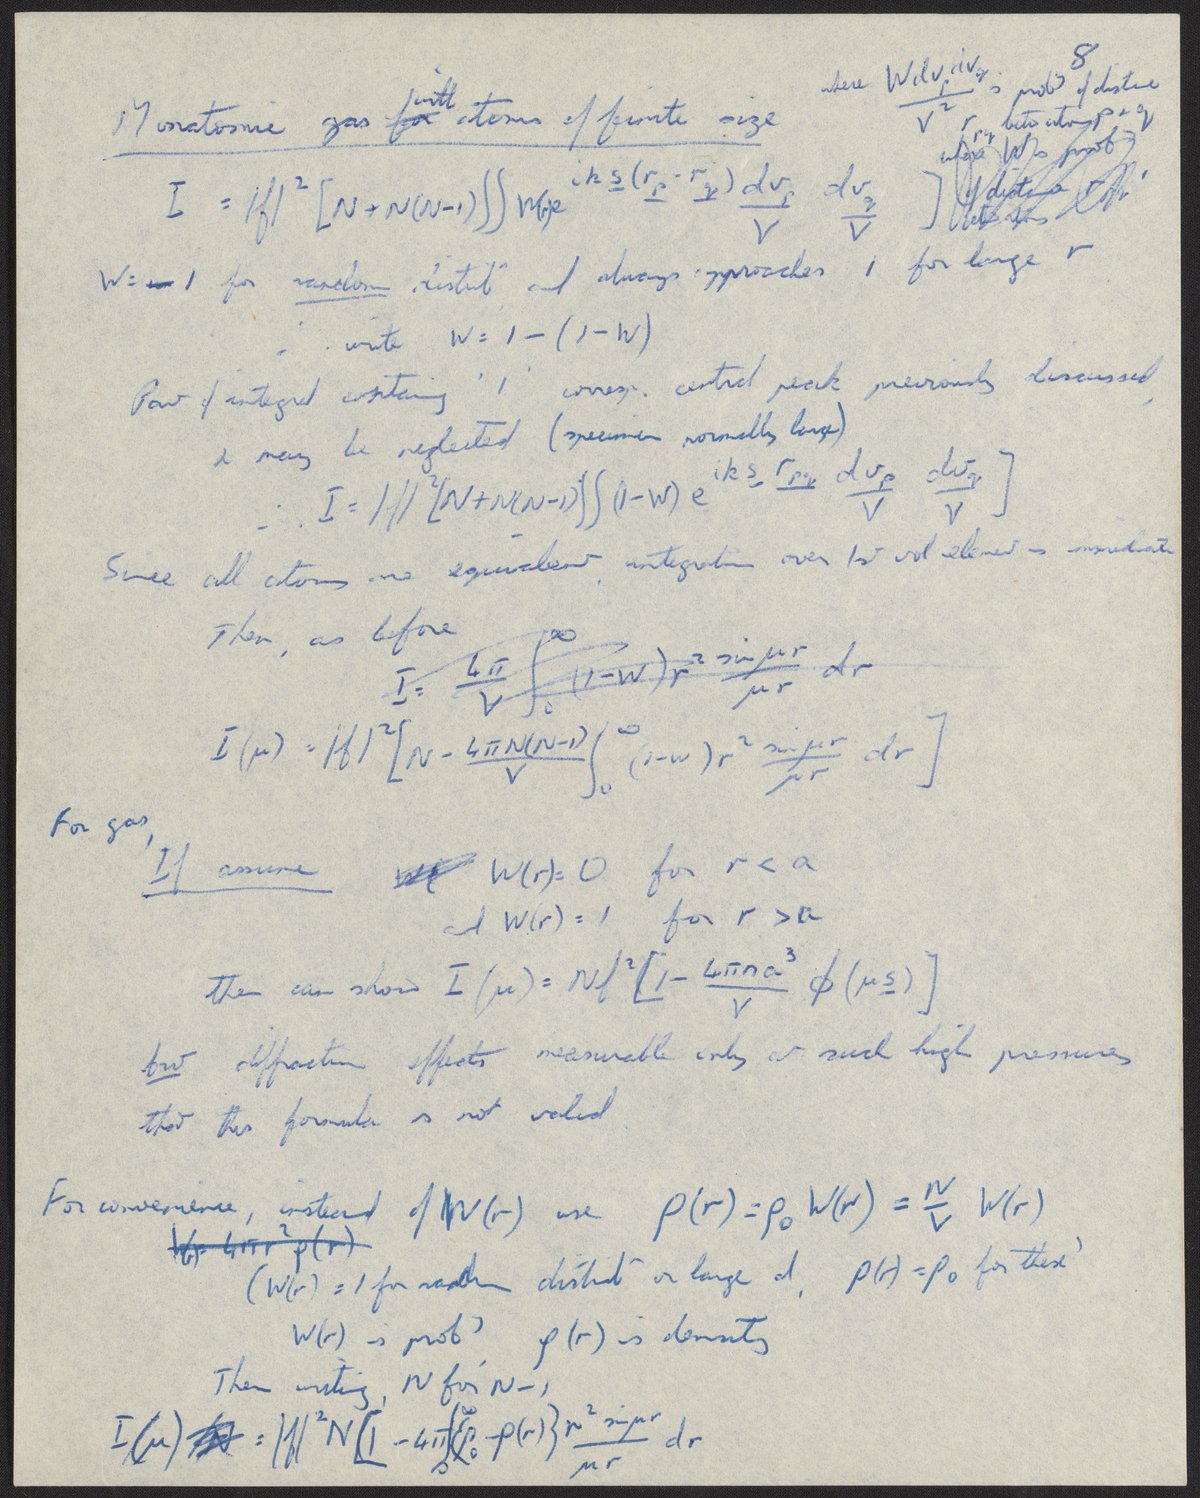 8
Monatomic gas with atoms of finite size
where W dv_p dv_q / V² is prob^y of distance
r_pq betw atoms p + q
where W is prob^y
of distance
I = |f|² [N + N(N-1) ∫∫ W(r) e^{ik s·(r_p - r_q)} dv_p/V dv_q/V ]
W = 1 for random distrib^n and always approaches 1 for large r
∴ write W = 1 - (1-W)
Part of integral containing '1' corresp. central peak previously discussed,
& may be neglected (specimen normally large)
∴ I = |f|² [N + N(N-1) ∫∫ (1-W) e^{ik s·r_pq} dv_p/V dv_q/V ]
Since all atoms are equivalent, integration over 1st vol element is immediate
Then, as before
I = 4π/V ∫_0^∞ (1-W) r² sin μr / μr dr
I(μ) = |f|² [N - 4πN(N-1)/V ∫_0^∞ (1-W) r² sin μr / μr dr ]
For gas,
If assume W( W(r) = 0 for r < a
and W(r) = 1 for r > a
then can show I(μ) = Nf² [1 - 4πna³/V φ(μs)]
but diffraction effects measurable only at such high pressures
that this formula is not valid
For convenience, instead of W(r) use ρ(r) = ρ₀ W(r) = N/V W(r)
W(r) = 4πr² ρ(r)
(W(r) = 1 for random distrib^n or large d, ρ(r) = ρ₀ for these)
W(r) is prob^y, ρ(r) is density
Then writing, N for N-1
I(μ) = |f|² N [1 - 4π ∫_0^∞ {ρ₀ - ρ(r)} r² sin μr / μr dr